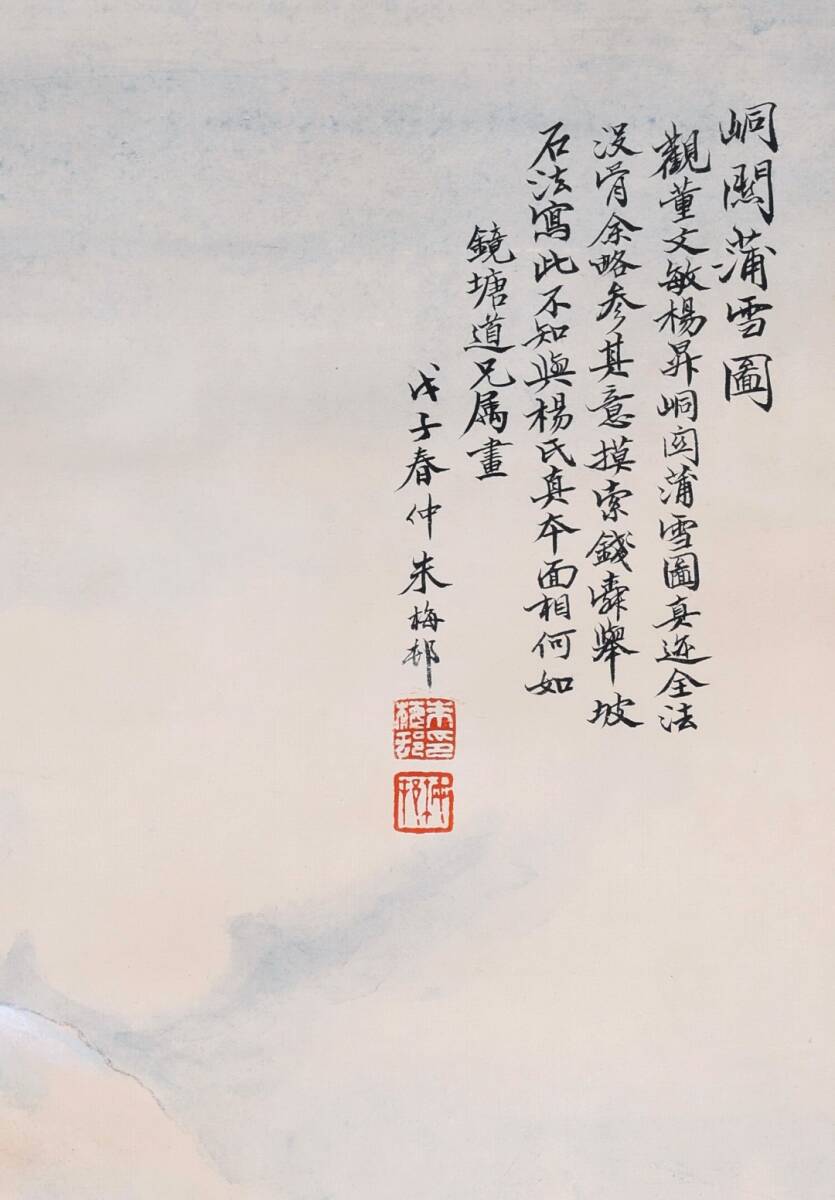 峒關蒲雪圖
觀董文敏楊昇峒関蒲雪圖真迹全法
没骨余略参其意摸索錢舜舉坡
石法寫此不知與楊氏真本面相何如
鏡塘道兄属畫
戊子春仲朱梅邨
朱印梅邨